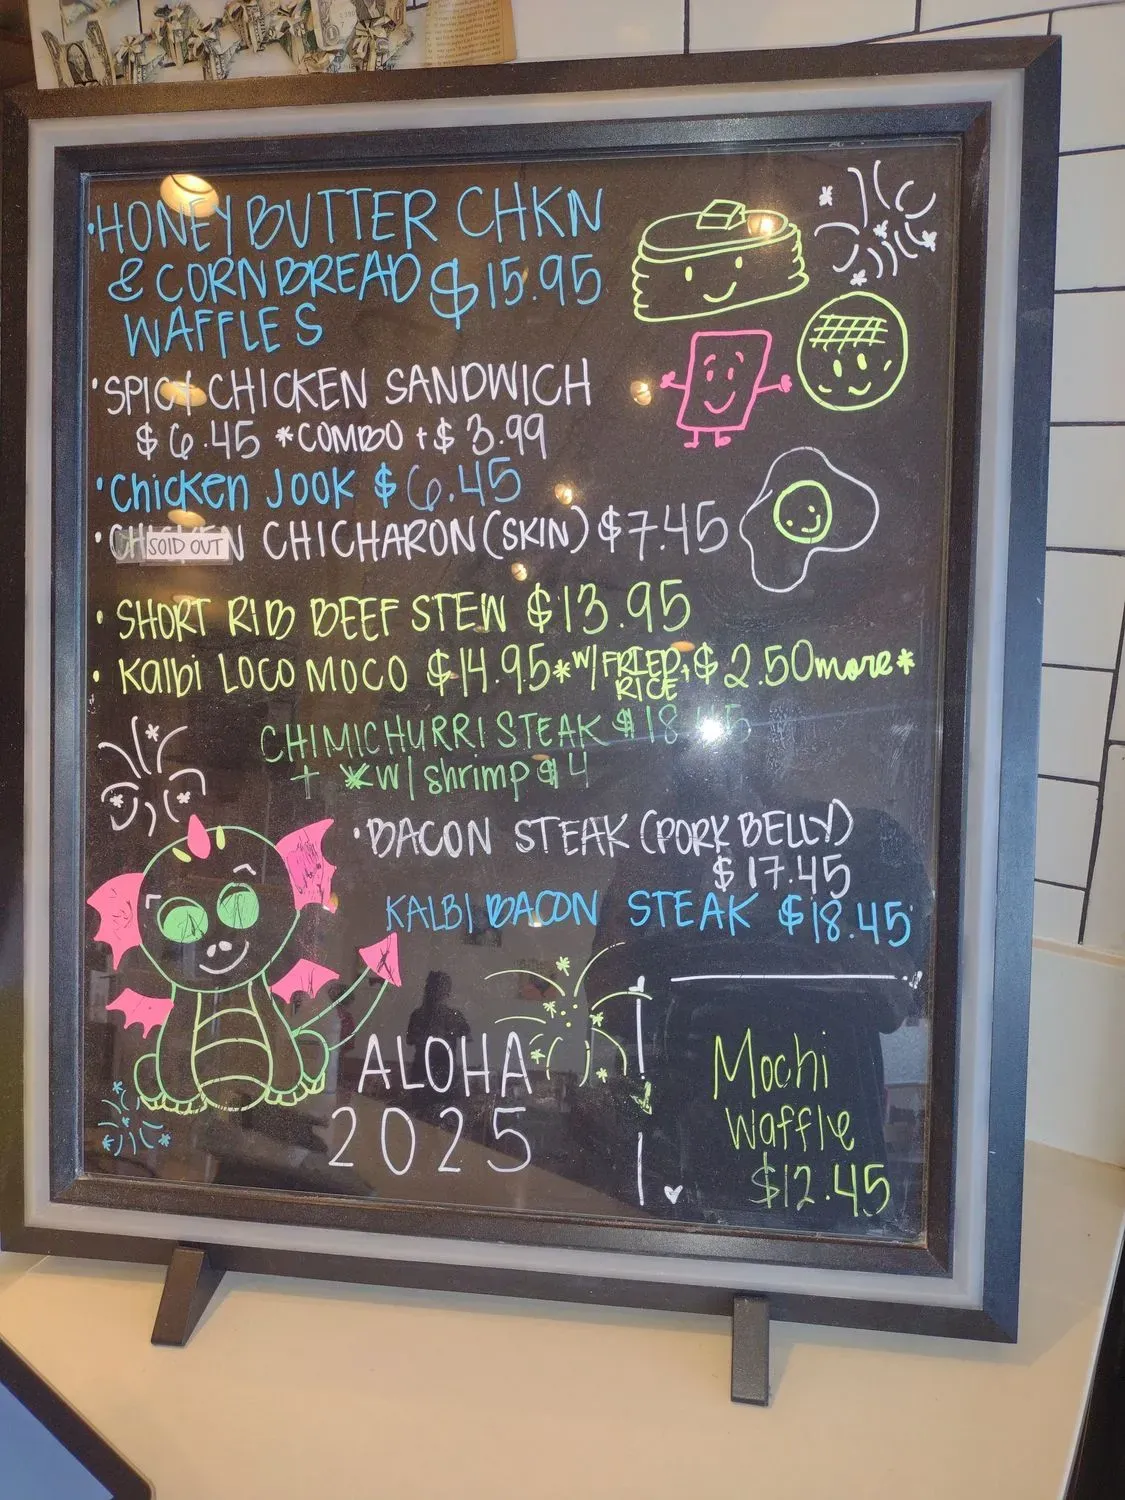 • HONEY BUTTER CHKN
& CORNBREAD $15.95
WAFFLES
• SPICY CHICKEN SANDWICH
$6.45 *COMBO + $3.99
• Chicken JOOK $6.45
• CHICKEN CHICHARON (SKIN) $7.45
SOLD OUT
• SHORT RIB BEEF STEW $13.95
• Kalbi LOCO MOCO $14.95 *W/ FRIED RICE + $2.50 more*
CHIMICHURRI STEAK
+ *w/ shrimp $4
• BACON STEAK (PORK BELLY)
$17.45
KALBI BACON STEAK $18.45
ALOHA
2025
Mochi
Waffle
$12.45